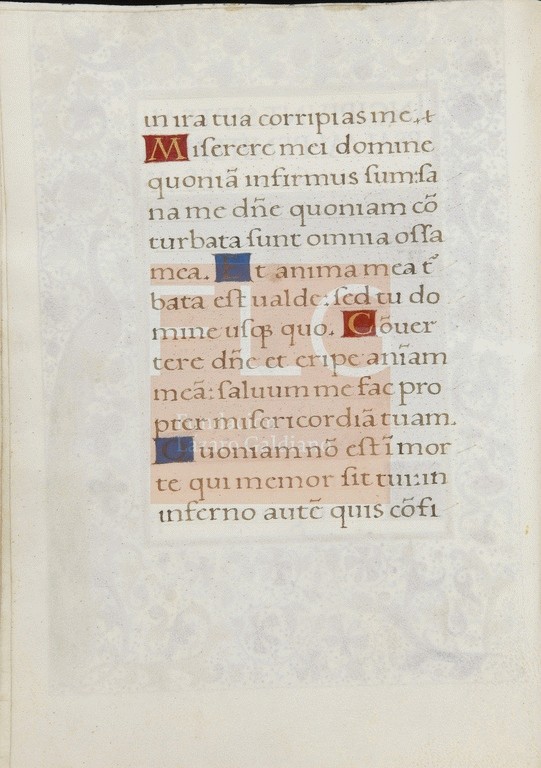 in ira tua corripias me.
Miſerere mei domine
quoniā infirmus ſum:ſa
na me dñe quoniam cō
turbata ſunt omnia oſſa
mea. Et anima mea t̃
bata eſt ualde: ſed tu do
mine uſqꝫ quo. Cōuer
tere dñe et eripe aniām
meā: ſaluum me fac pro
pter miſericordiā tuam.
Quoniam nō eſt ī mor
te qui memor ſit tui: in
inferno autē quis cōfi
FLG
Fundación
Lázaro Galdiano